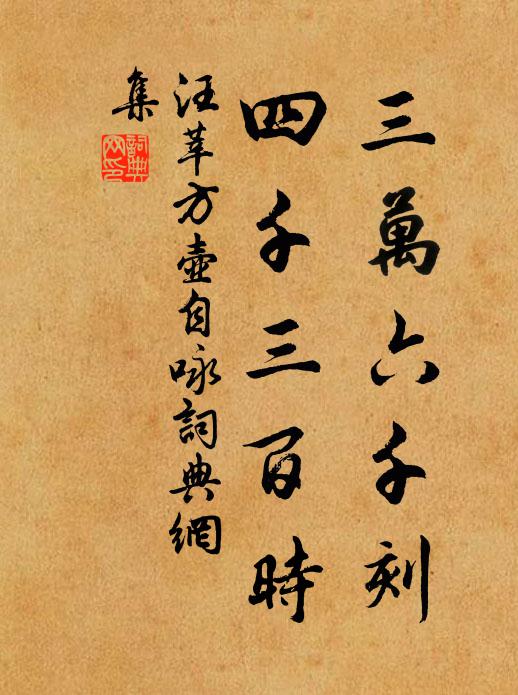 三萬六千刻
四千三百時
汪莘方壺自咏詞典網
集
詞典
网印